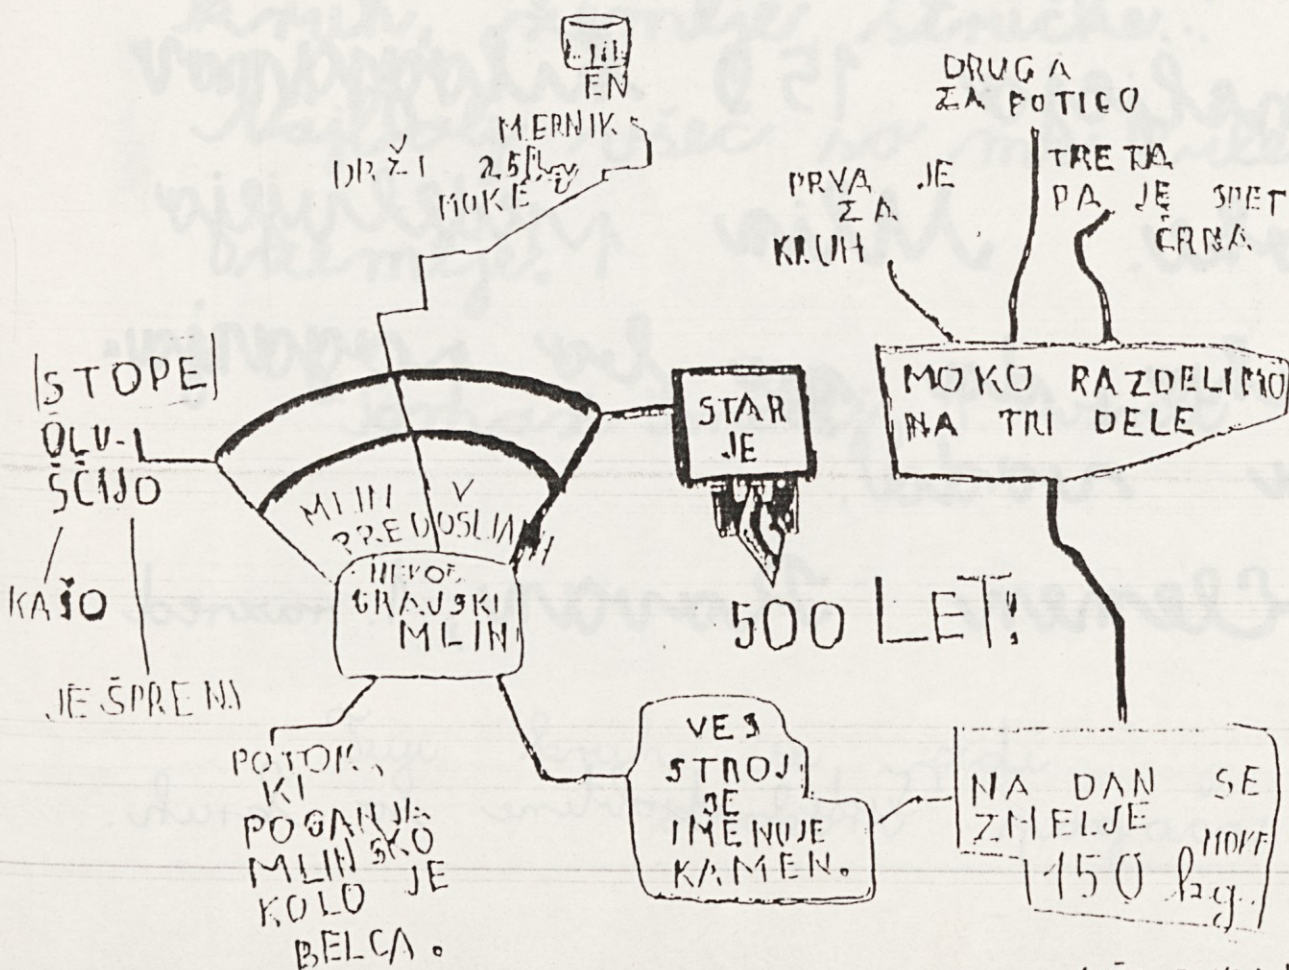 EN
MERNIK
DRŽI 25 kg
MOKE
DRUGA
ZA POTICO
PRVA JE
ZA
KRUH
TRETJA
PA JE SPET
ČRNA
MOKO RAZDELIMO
NA TRI DELE
STOPE
OLU-
ŠČIJO
KAŠO
JEŠPRENJ
MLIN V
PREDOSLJAH
NEKOČ
GRAJSKI
MLIN
STAR
JE
500 LET!
POTOK,
KI
POGANJA
MLINSKO
KOLO JE
BELCA.
VES
STROJ
SE
IMENUJE
KAMEN.
NA DAN SE
ZMELJE MOKE
150 kg.